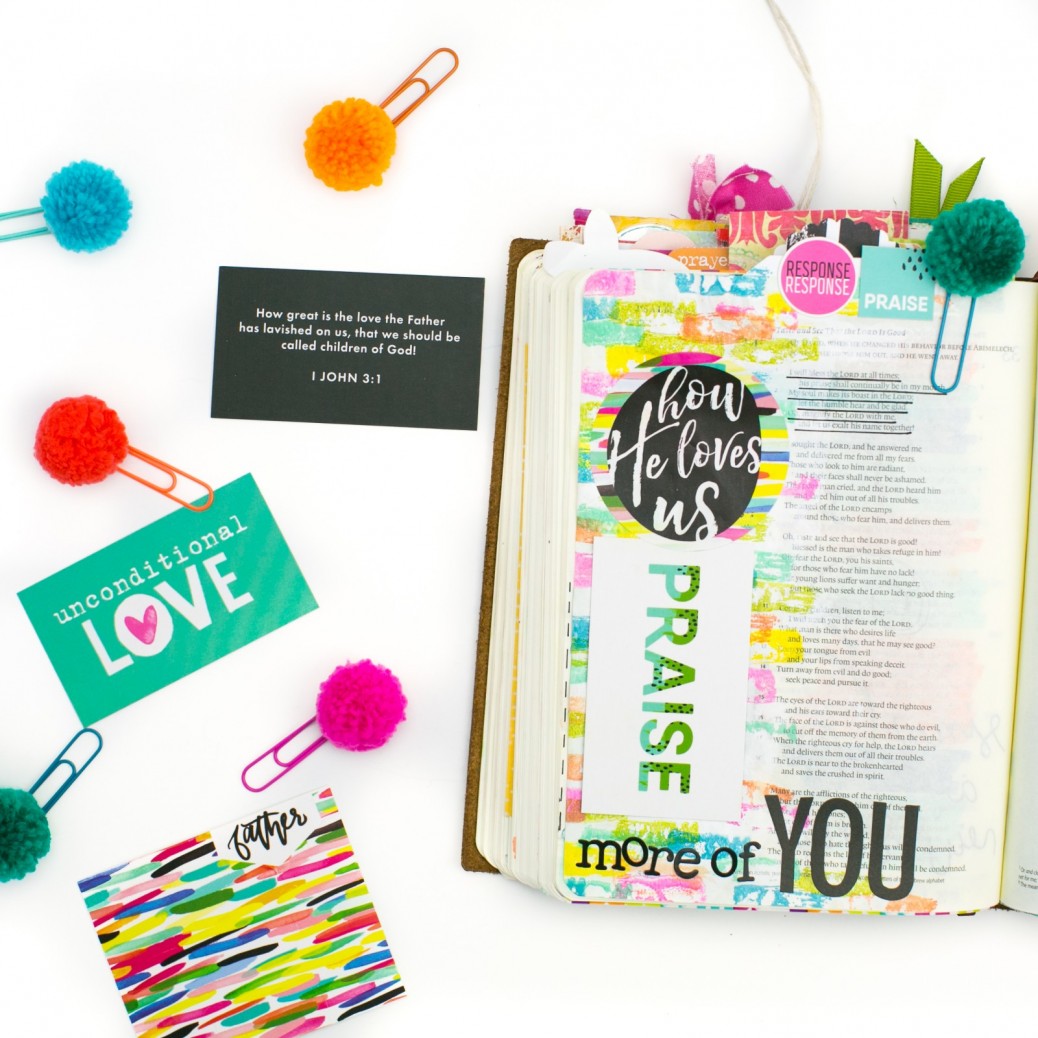 How great is the love the Father
has lavished on us, that we should be
called children of God!
I JOHN 3:1
unconditional
LOVE
father
praye
RESPONSE
RESPONSE
PRAISE
how
He loves
us
PRAISE
more of YOU
I will bless the LORD at all times;
praise shall continually be in my mouth.
My soul makes its boast in the LORD;
let the humble hear and be glad.
the LORD with me,
us exalt his name together!
sought the LORD, and he answered me
and delivered me from all my fears.
those who look to him are radiant,
and their faces shall never be ashamed.
man cried, and the LORD heard him
him out of all his troubles.
The angel of the LORD encamps
around those who fear him, and delivers them.
Oh, taste and see that the LORD is good!
Blessed is the man who takes refuge in him!
fear the LORD, you his saints,
for those who fear him have no lack!
young lions suffer want and hunger;
those who seek the LORD lack no good thing.
children, listen to me;
I will teach you the fear of the LORD.
man is there who desires life
and loves many days, that he may see good?
your tongue from evil
and your lips from speaking deceit.
Turn away from evil and do good;
seek peace and pursue it.
The eyes of the LORD are toward the righteous
and his ears toward their cry.
The face of the LORD is against those who do evil,
to cut off the memory of them from the earth.
When the righteous cry for help, the LORD hears
and delivers them out of all their troubles.
The LORD is near to the brokenhearted
and saves the crushed in spirit.
Many are the afflictions of the righteous,